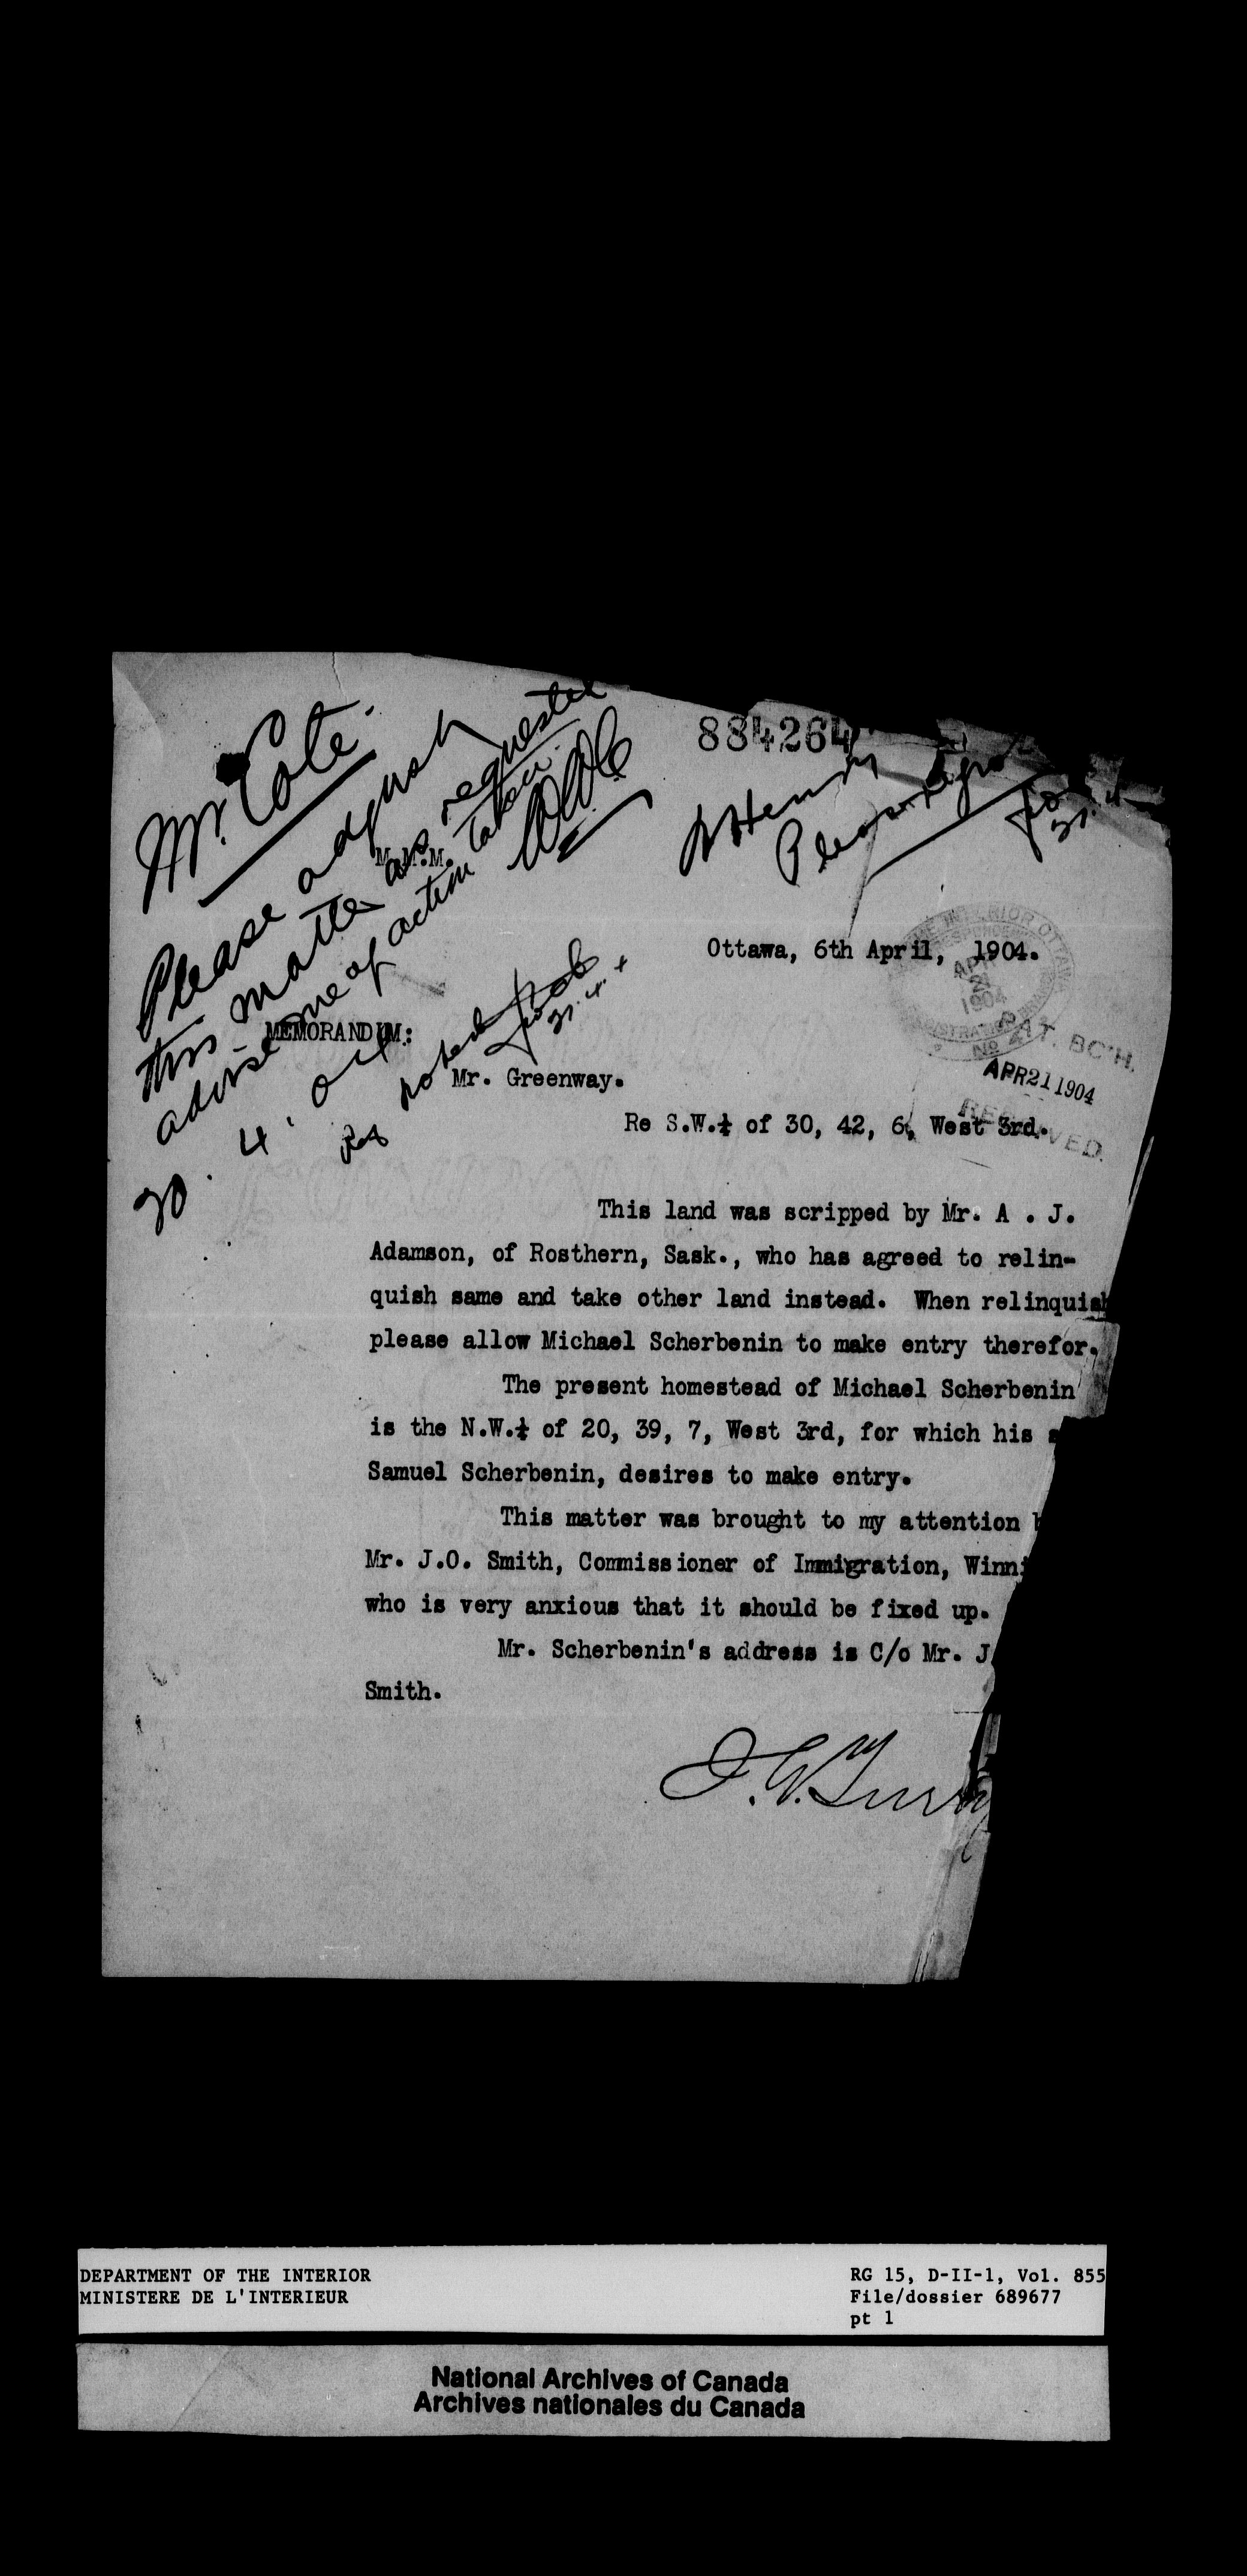 884264
Mr. Cote.
Please adjust
this matter as requested
advise me of action taken.
20.4.04
Henry
Please
M.M.M.
Ottawa, 6th April, 1904.
INTERIOR OTTAWA
APR
21
1904
No 4
PAT. BC'H.
APR 21 1904
RECEIVED.
MEMORANDUM:
noted
21.4.4
Mr. Greenway.
Re S.W.¼ of 30, 42, 6, West 3rd.
This land was scripped by Mr. A . J.
Adamson, of Rosthern, Sask., who has agreed to relin-
quish same and take other land instead. When relinquish
please allow Michael Scherbenin to make entry therefor.
The present homestead of Michael Scherbenin
is the N.W.¼ of 20, 39, 7, West 3rd, for which his
Samuel Scherbenin, desires to make entry.
This matter was brought to my attention b
Mr. J.O. Smith, Commissioner of Immigration, Winni
who is very anxious that it should be fixed up.
Mr. Scherbenin's address is C/o Mr. J
Smith.
J.G. Turri
DEPARTMENT OF THE INTERIOR
MINISTERE DE L'INTERIEUR
RG 15, D-II-1, Vol. 855
File/dossier 689677
pt 1
National Archives of Canada
Archives nationales du Canada